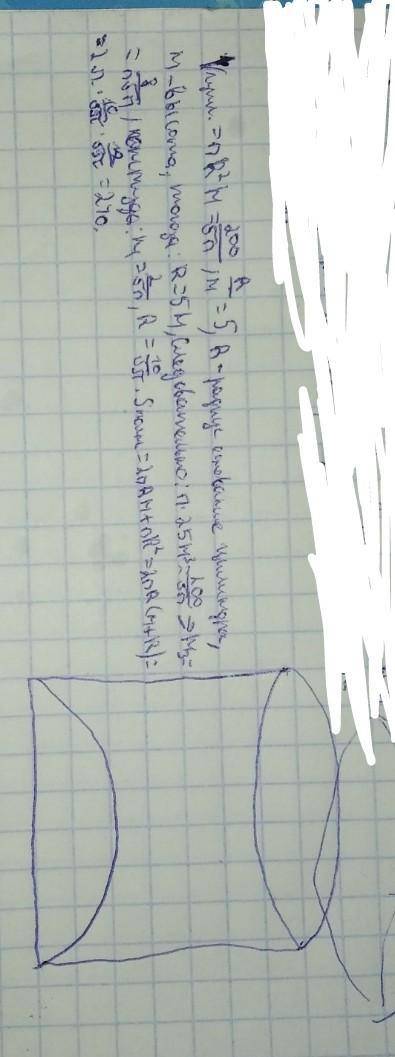 Vцил. = πR²H = 200/√π, R/H = 5, R - радиус основание цилиндра,
H - высота, тогда: R = 5H, следовательно: π · 25H³ = 200/√π => H³ =
= 8/π√π, H = 2/√π, R = 10/√π. Sполн = 2πRH + πR² = 2πR(H+R) =
= 2π · 10/√π · 12/√π = 240.